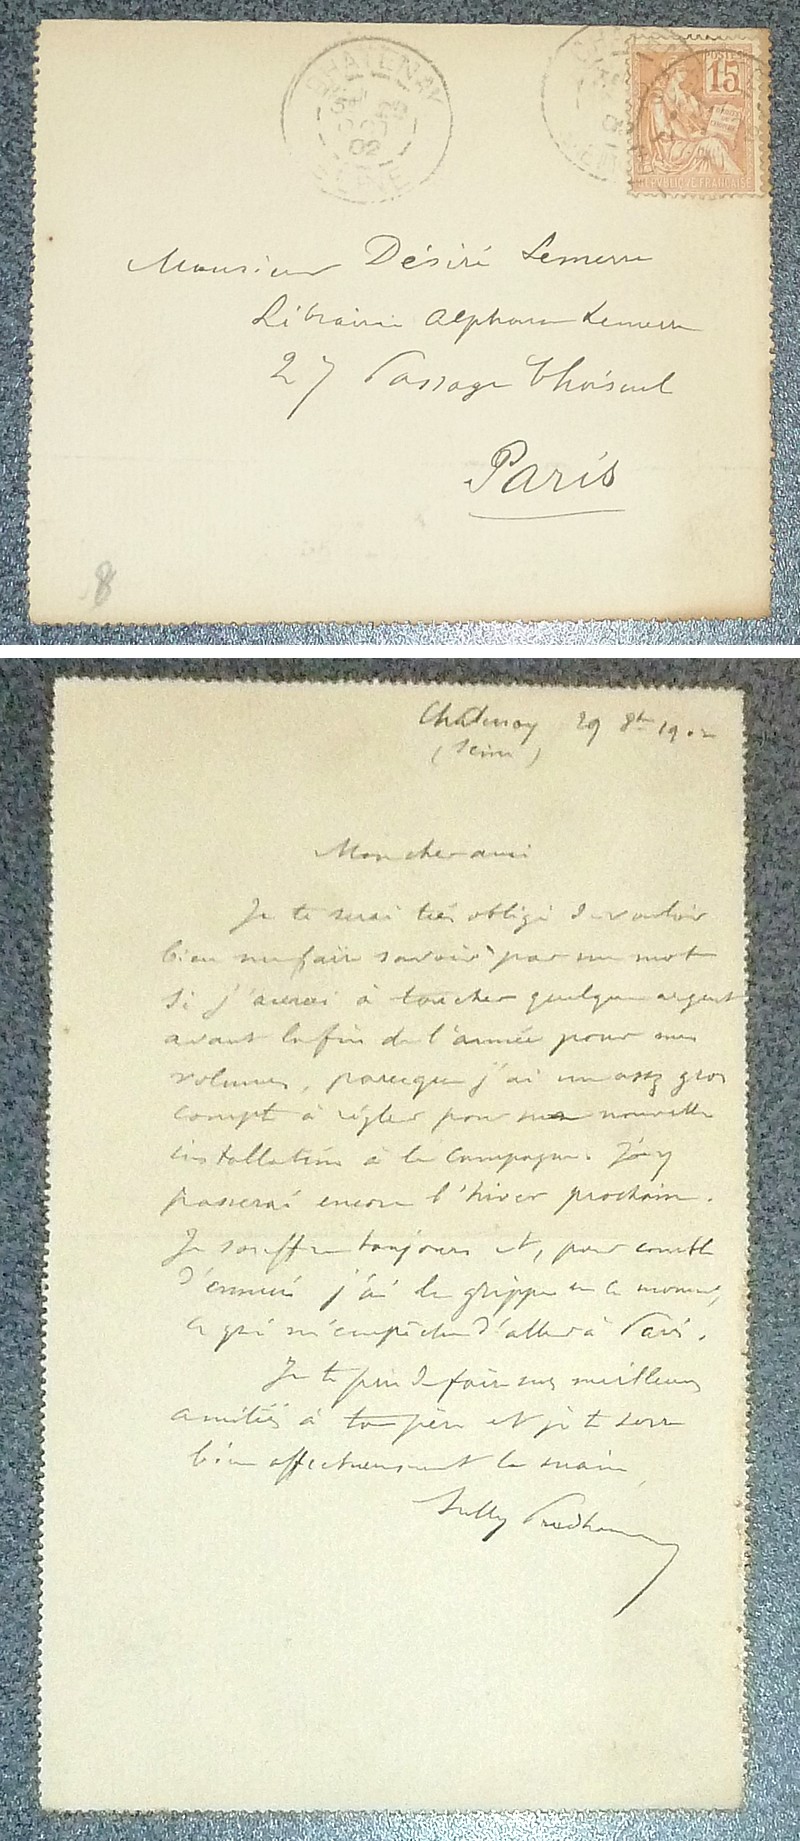 CHATENAY
02
SEINE
POSTES
15
REPUBLIQUE FRANCAISE
Monsieur Désiré Lemerre
Librairie Alphonse Lemerre
27 Passage Choiseul
Paris
8
Chatenay 29 8bre 1902
(Seine)
Mon cher ami
Je te serai très obligé de vouloir
bien me faire savoir par un mot
si j'aurai à toucher quelque argent
avant la fin de l'année pour mes
volumes, parceque j'ai un assez gros
compte à régler pour ma nouvelle
installation à la campagne. J'y
passerai encore l'hiver prochain.
Je souffre toujours et, pour comble
d'ennui j'ai la grippe en ce moment,
ce qui m'empêche d'aller à Paris.
Je te prie de faire mes meilleures
amitiés à ton père et je te serre
bien affectueusement la main,
Sully Prudhomme